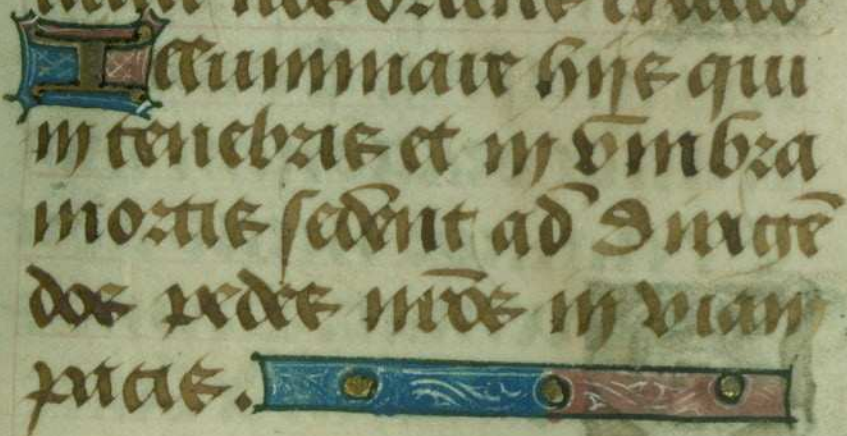 Illuminare hijs qui
in tenebris et in vmbra
mortis sedent ad dirigẽ
dos pedes nr̃os in viam
pacis.